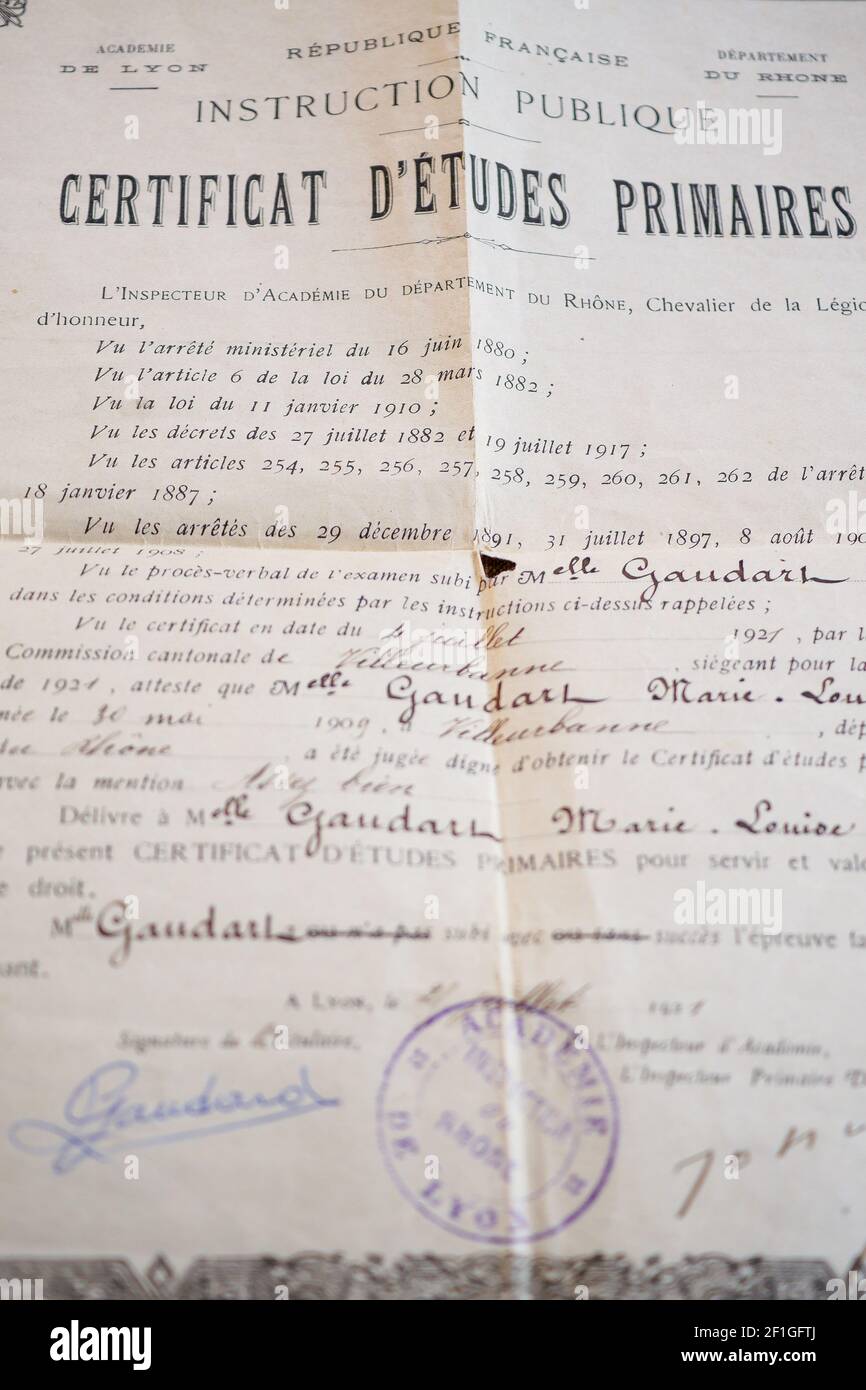 ACADEMIE
DE LYON
RÉPUBLIQUE FRANÇAISE
DÉPARTEMENT
DU RHONE
INSTRUCTION PUBLIQUE
CERTIFICAT D'ÉTUDES PRIMAIRES
L'Inspecteur d'Académie du département du Rhône, Chevalier de la Légio
d'honneur,
Vu l'arrêté ministériel du 16 juin 1880 ;
Vu l'article 6 de la loi du 28 mars 1882 ;
Vu la loi du 11 janvier 1910 ;
Vu les décrets des 27 juillet 1882 et 19 juillet 1917 ;
Vu les articles 254, 255, 256, 257, 258, 259, 260, 261, 262 de l'arrêt
18 janvier 1887 ;
Vu les arrêtés des 29 décembre 1891, 31 juillet 1897, 8 août 190
27 juillet 1908 ;
Vu le procès-verbal de l'examen subi par Melle Gaudart
dans les conditions déterminées par les instructions ci-dessus rappelées ;
Vu le certificat en date du 4 juillet 1921, par l
Commission cantonale de Villeurbanne, siégeant pour la
de 1921, atteste que Melle Gaudart Marie-Lou
née le 30 mai 1909, à Villeurbanne, dép
du Rhône, a été jugée digne d'obtenir le Certificat d'études p
avec la mention Assez bien
Délivre à Melle Gaudart Marie-Louise
e présent CERTIFICAT D'ÉTUDES PRIMAIRES pour servir et val
e droit.
Melle Gaudart ou n'a pas subi avec ou sans succès l'épreuve fa
ant.
A Lyon, le juillet 1921
Signature de l'titulaire,
L'Inspecteur d'Académie,
L'Inspecteur Primaire
Gaudard
ACADÉMIE DE LYON
INSPECTION
DU
RHÔNE
alamy
Image ID: 2F1GFTJ
www.alamy.com